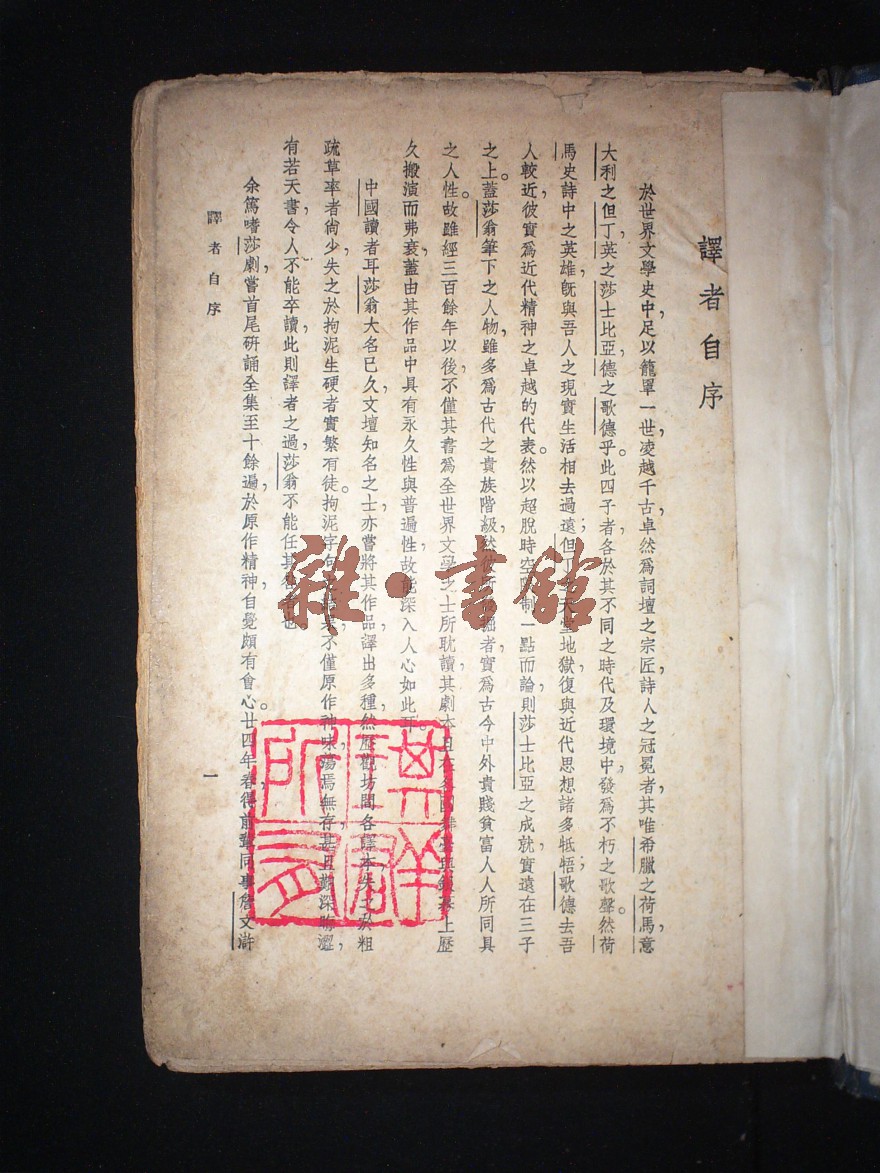 譯者自序
於世界文學史中,足以籠罩一世,凌越千古,卓然爲詞壇之宗匠,詩人之冠冕者,其唯希臘之荷馬,意
大利之但丁,英之莎士比亞,德之歌德乎。此四子者,各於其不同之時代及環境中,發爲不朽之歌聲。然荷
馬史詩中之英雄,旣與吾人之現實生活相去過遠;但丁之天堂地獄,復與近代思想諸多牴牾;歌德去吾
人較近,彼實爲近代精神之卓越的代表。然以超脫時空限制一點而論,則莎士比亞之成就,實遠在三子
之上。蓋莎翁筆下之人物,雖多爲古代之貴族階級,然彼所發掘者,實爲古今中外貴賤貧富人人所同具
之人性。故雖經三百餘年以後,不僅其書爲全世界文學之士所耽讀,其劇本且在各國舞臺與銀幕上歷
久搬演而弗衰,蓋由其作品中具有永久性與普遍性,故能深入人心如此耳。
中國讀者耳莎翁大名已久,文壇知名之士,亦嘗將其作品,譯出多種,然歷觀坊間各譯本,失之於粗
疏草率者尙少,失之於拘泥生硬者實繁有徒。拘泥字句之結果,不僅原作神味蕩焉無存,甚且艱深晦澀,
有若天書,令人不能卒讀,此則譯者之過,莎翁不能任其咎者也。
余篤嗜莎劇,嘗首尾研誦全集至十餘遍,於原作精神,自覺頗有會心。廿四年春,得前輩同事詹文滸
譯者自序
一
雜·書館